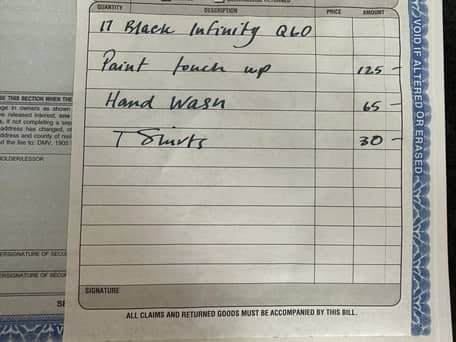 QUANTITY DESCRIPTION PRICE AMOUNT
17 Black Infinity Q60
Paint touch up 125 -
Hand Wash 65 -
T Shirts 30 -
SIGNATURE
ALL CLAIMS AND RETURNED GOODS MUST BE ACCOMPANIED BY THIS BILL.
SE THIS SECTION WHEN THE
nge in owners as shown
ve released interest, one
s, if not completing a sep
address has changed, c
and county of resi
d the fee to: DMV, 1905
HOLDER/LESSOR
ERSIGNATURE OF SECU
ERSIGNATURE OF SECUR
SE
VOID IF ALTERED OR ERASED